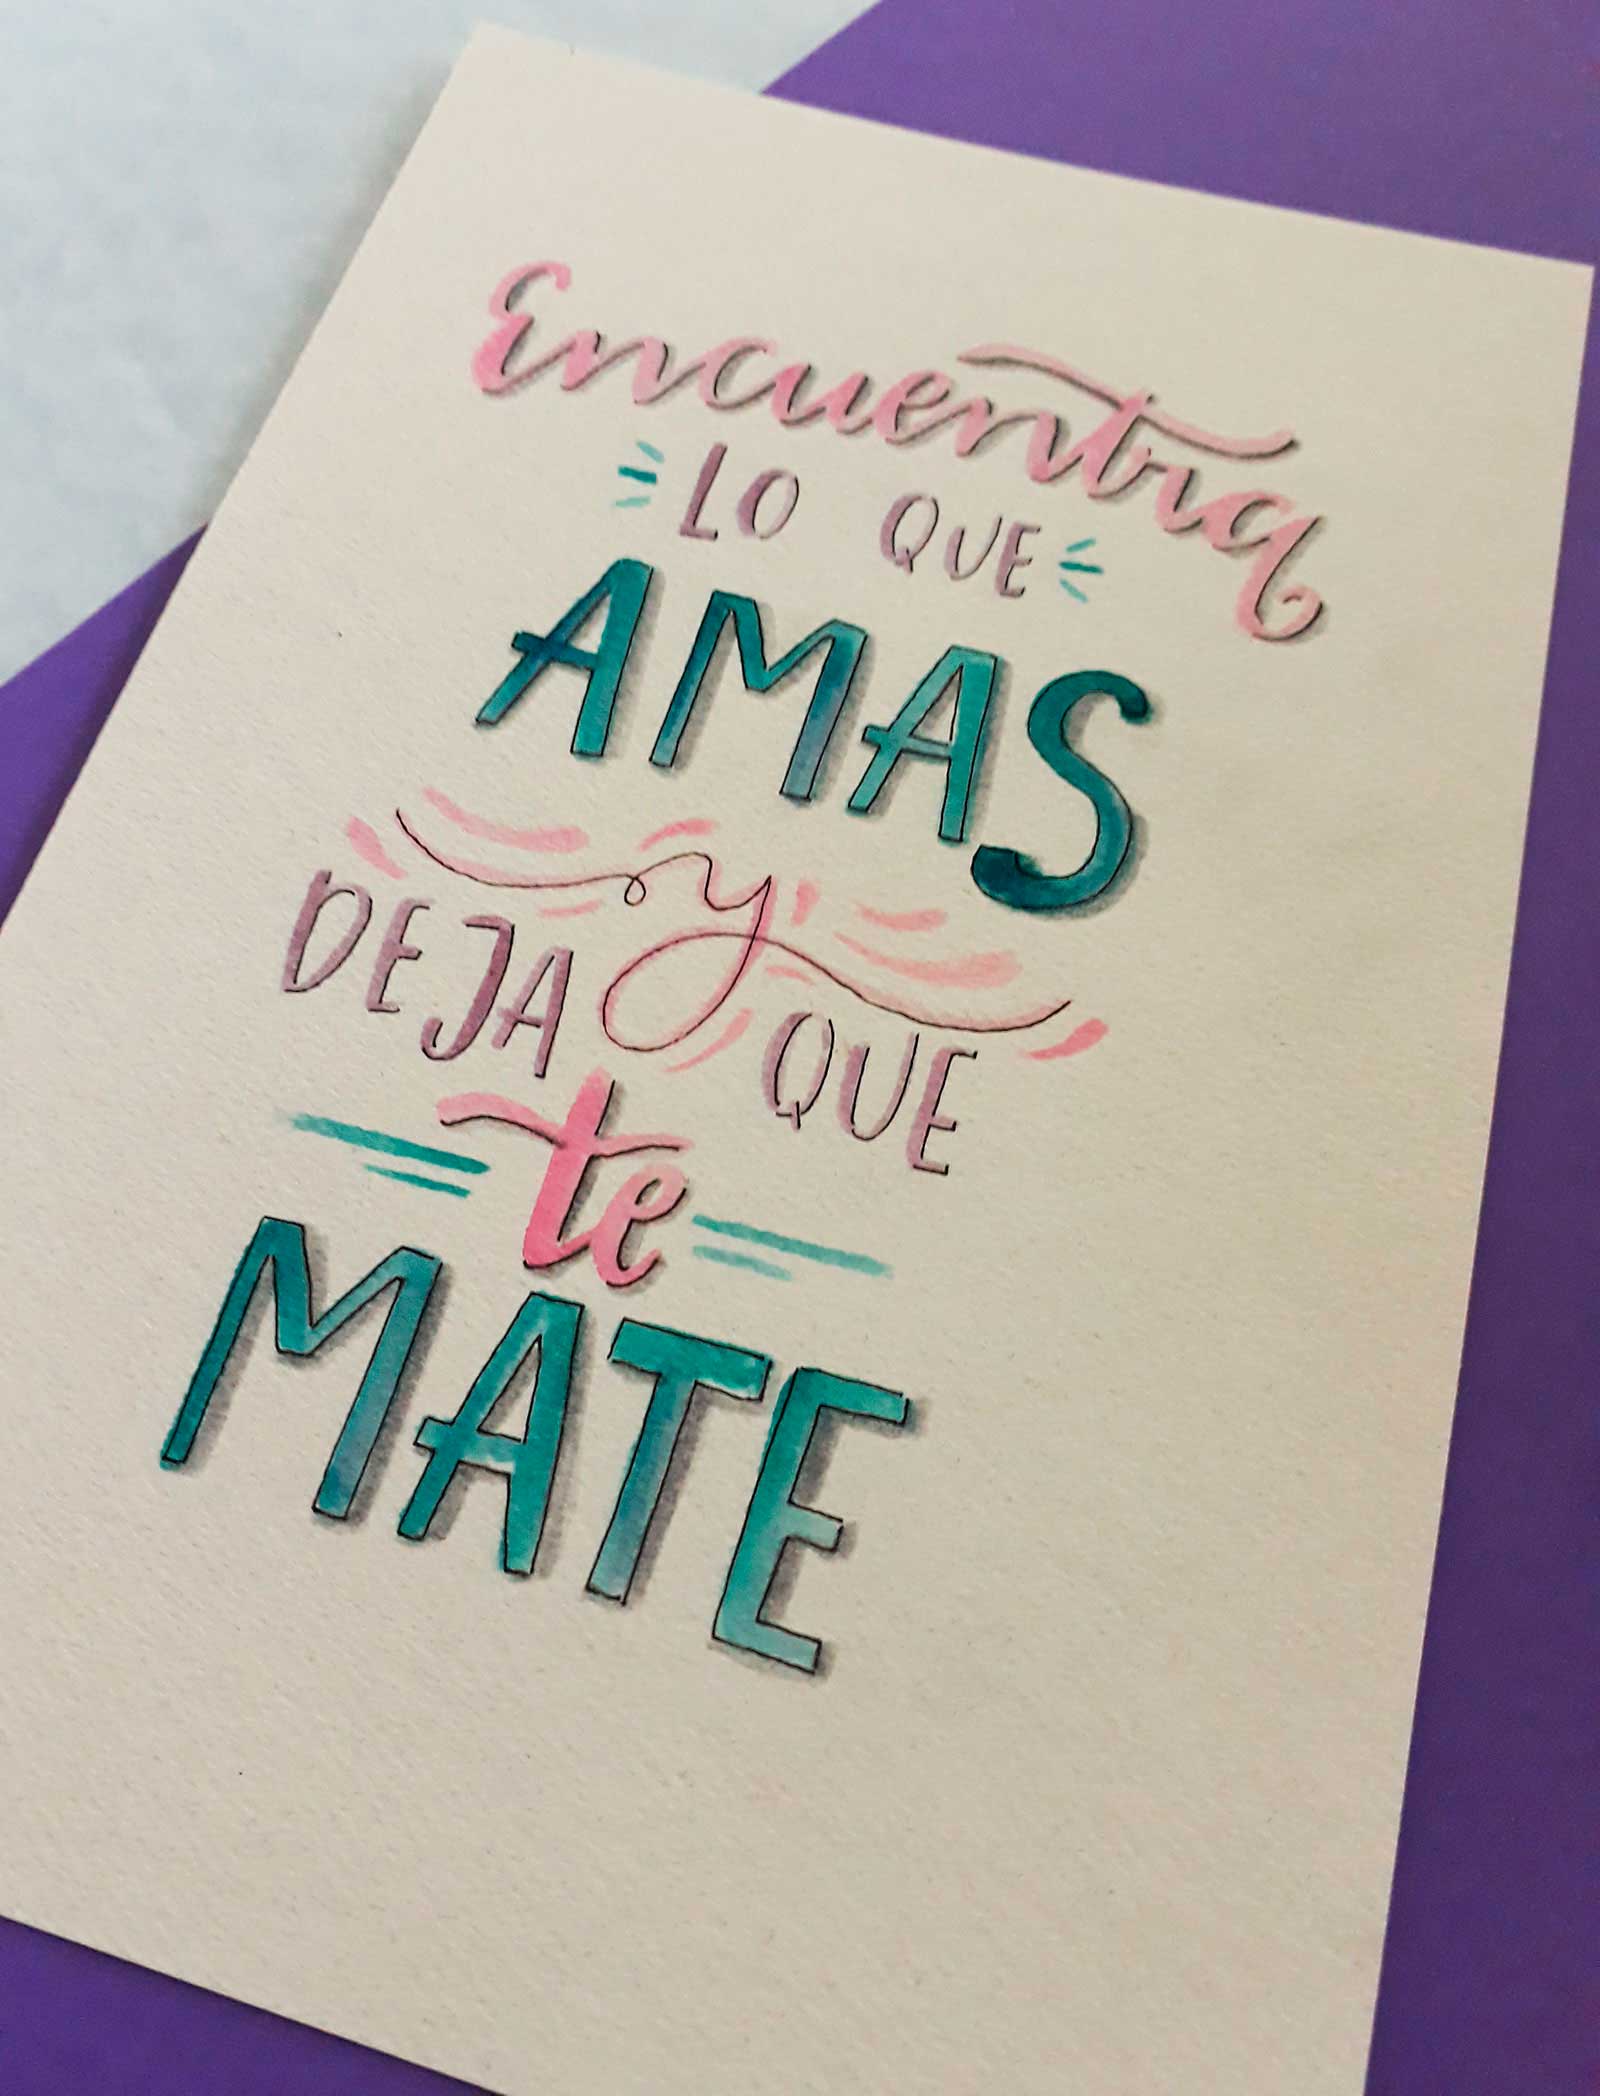 Encuentra
LO QUE
AMAS
y
DEJA QUE
te
MATE